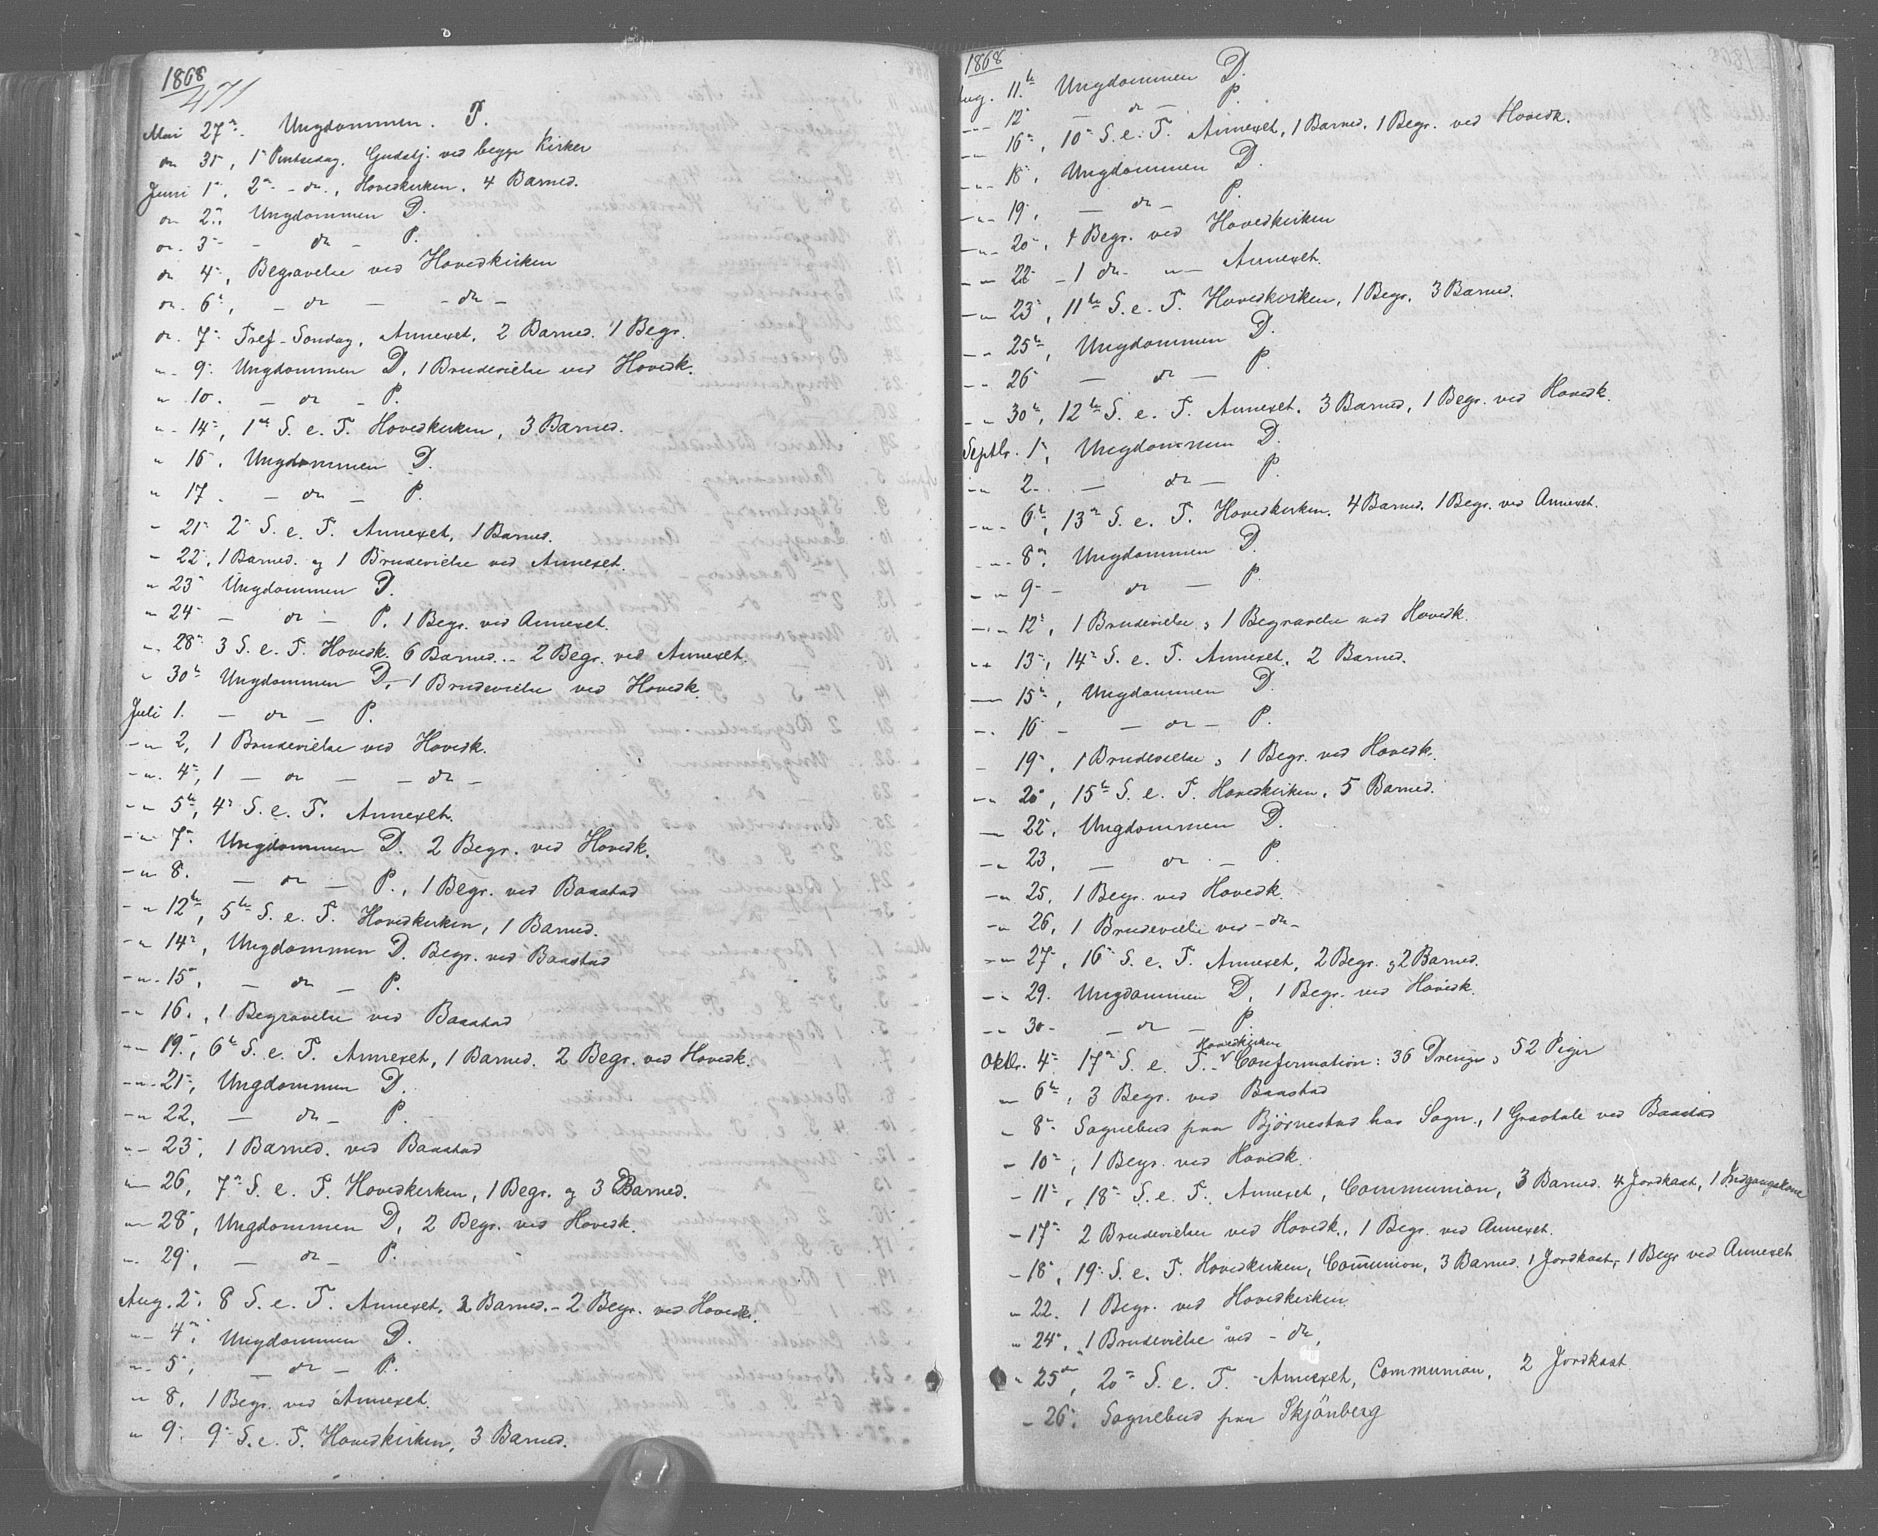 1868
471
Mai 27de. Ungdommen. P.
do 31, 1 Pintsedag. Gudstj. ved begge Kirker
Juni 1, 2den - do, Hovedkirken. 4 Barned.
do 2. Ungdommen D.
do. 3 - do - P.
do 4, Begravelse ved Hovedkirken
do. 6, - do - - do -
do. 7 Tref-Sondag, Annexet, 2 Barned. 1 Begr.
" - 9 Ungdommen D, 1 Brudevielse ved Hovedk.
" 10. - do - P.
" - 14, 1ste S. e. T. Hovedkirken, 3 Barned.
" 16, Ungdommen D.
" 17. - do - P.
- 21 2 S. e. T. Annexet, 1 Barned.
- 22, 1 Barned. og 1 Brudevielse ved Annexet.
" 23 Ungdommen D.
" 24 - do - P. 1 Begr. ved Annexet.
". 28 3 S. e. T. Hovedk. 6 Barned.. - 2 Begr. ved Annexet.
" 30te Ungdommen D, - 1 Brudevielse ved Hovedk.
Juli 1. - do - P.
-" 2, 1 Brudevielse ved Hovedk.
-". 4, 1 - do - - do -
-" 5te, 4 S. e. T. Annexet.
-" 7. Ungdommen D. 2 Begr. ved Hovedk.
-" 8. - do - P., 1 Begr. ved Baastad
-" 12te, 5te S. e. T. Hovedkirken, 1 Barned.
-" 14, Ungdommen D. Begr. ved Baastad
-". 15, - do - P.
-" 16., 1 Begravelse ved Baastad
-" 19., 6te S. e. T. Annexet, 1 Barned. 2 Begr. ved Hovedk.
-" 21, Ungdommen D.
-" 22, - do - P.
"- 23, 1 Barned. ved Baastad
"- 26, 7 S. e. T. Hovedkirken, 1 Begr. og 3 Barned.
-" 28, Ungdommen D, 2 Begr. ved Hovedk.
"- 29, - do - P.
Aug. 2. 8 S. e. T. Annexet, 2 Barned. - 2 Begr. ved Hovedk.
"- 4, Ungdommen D.
"- 5, - do - P.
" 8, 1 Begr. ved Annexet.
" 9. 9 S. e. T. Hovedkirken, 3 Barned.
1868
Aug. 11te Ungdommen D.
-- 12 - do - P.
-" 16, 10 S. e. T. Annexet, 1 Barned. 1 Begr. ved Hovedk.
-"- 18, Ungdommen D.
-"- 19, - do - P.
-"- 20, 1 Begr. ved Hovedkirken
-" 22 - 1 do - "- Annexet.
-" 23, 11te S. e. T. Hovedkirken, 1 Begr. 3 Barned.
-"- 25te, Ungdommen D.
-"- 26 - do - P.
-" 30te, 12te S. e. T. Annexet. 3 Barned, 1 Begr. ved Hovedk.
Septbr. 1, Ungdommen D.
-" 2. - do - P.
-"- 6te, 13 S. e. T. Hovedkirken. 4 Barned. 1 Begr. ved Annexet.
-"- 8, Ungdommen D.
-" 9 - do - P.
-"- 12, 1 Brudevielse, 1 Begravelse ved Hovedk.
-" 13, 14 S. e. T. Annexet, 2 Barned.
-- 15te, Ungdommen D.
-". 16 - - do - P.
- 19, 1 Brudevielse, 1 Begr. ved Hovedk.
-" 20, 15te S. e. T. Hovedkirken. 5 Barned.
- 22, Ungdommen D.
-" 23, - do - P.
-" 25, 1 Begr. ved Hovedk.
-" 26, 1 Brudevielse ved - do -
-" 27, 16 S. e. T. Annexet, 2 Begr. 2 Barned.
-" 29. Ungdommen D, 1 Begr. ved Hovedk.
-" 30 - - do - P.
Oktbr. 4 17 S. e. T. - Hovedkirken Confirmation: 36 Drenge, 52 Piger
" 6te, 3 Begr. ved Baastad
" 8 Sognebud paa Bjørnestad har Sogn., 1 Gravtale ved Baastad
- 10, 1 Begr. ved Hovedk.
- 11, 18 S. e. T. Annexet, Communion, 3 Barned. 4 Jordkast, 1 Indgangskone
- 17 2 Brudevielser ved Hovedk., 1 Begr. ved Annexet.
- 18, 19 S. e. T. Hovedkirken, Communion, 3 Barned. 1 Jordkast, 1 Begr ved Annexet
" 22. 1 Begr. ved Hovedkirken.
" 24, 1 Brudevielse ved - do,
" 25, 20 S. e. T. Annexet, Communion, 2 Jordkast.
- 26, Sognebud paa Skjönberg